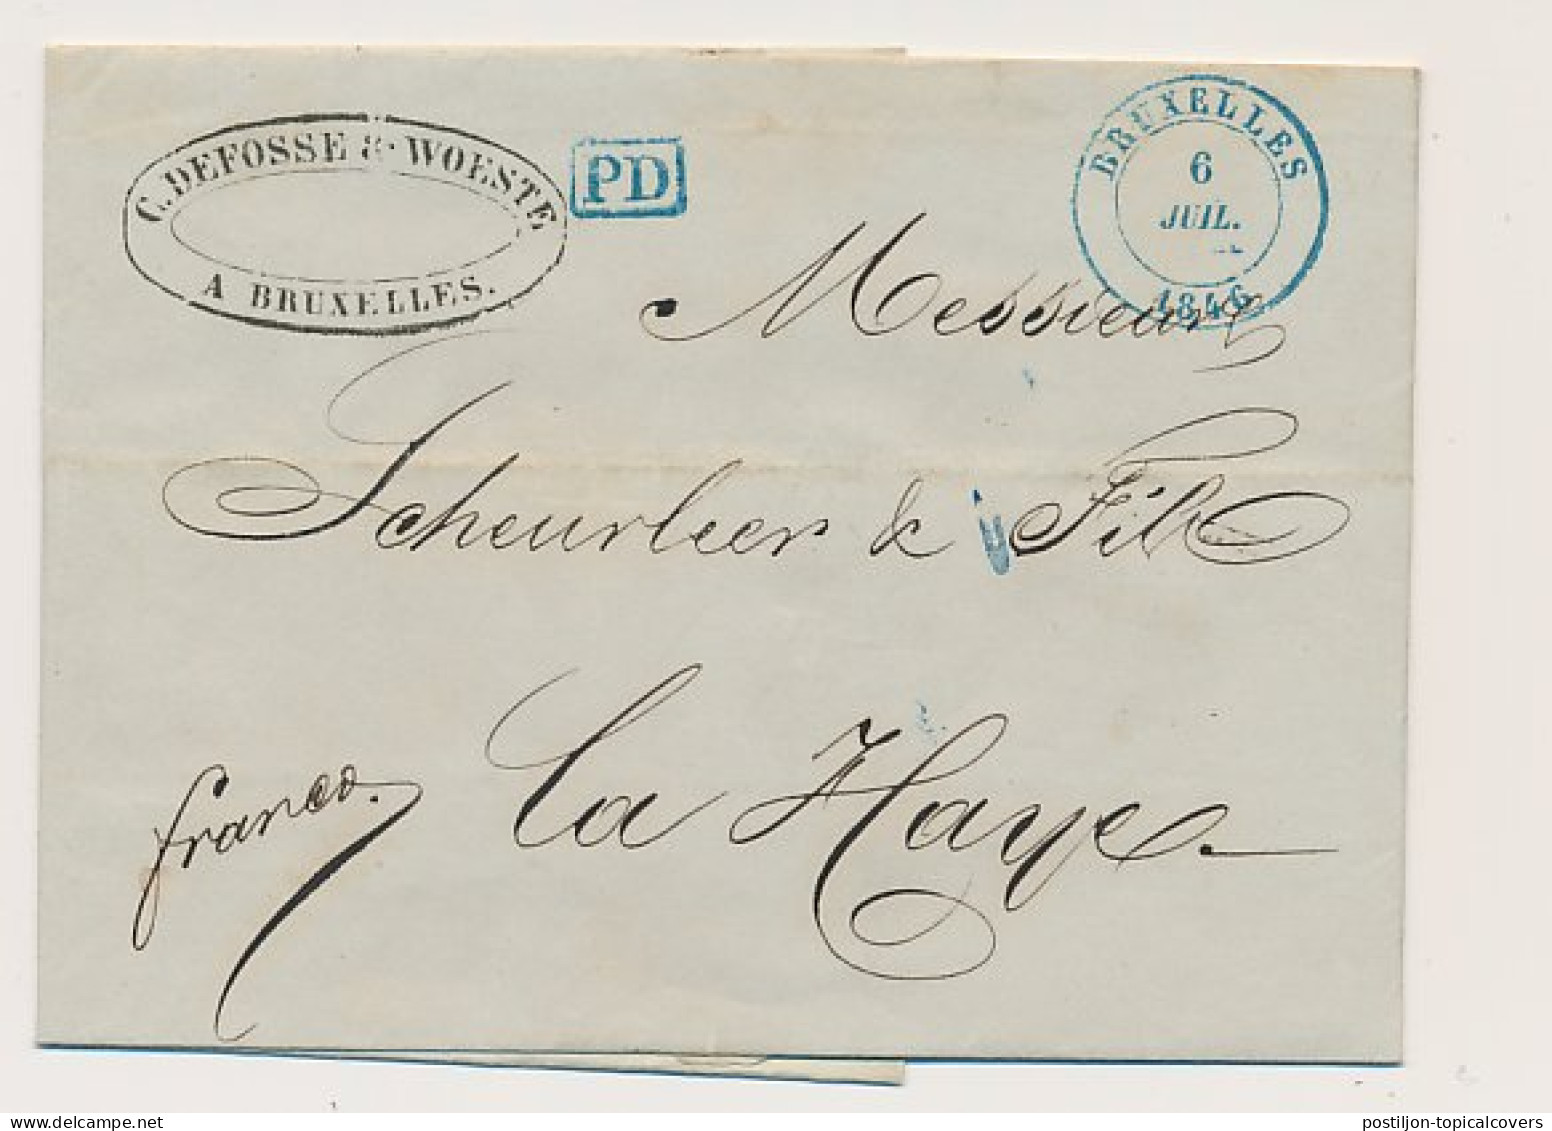 C. DEFOSSE & WOESTE
A BRUXELLES.
PD
BRUXELLES
6
JUIL.
1846
Messieurs
Scheurleer & Fils
La Haye.
franco.
postiljon-topicalcovers